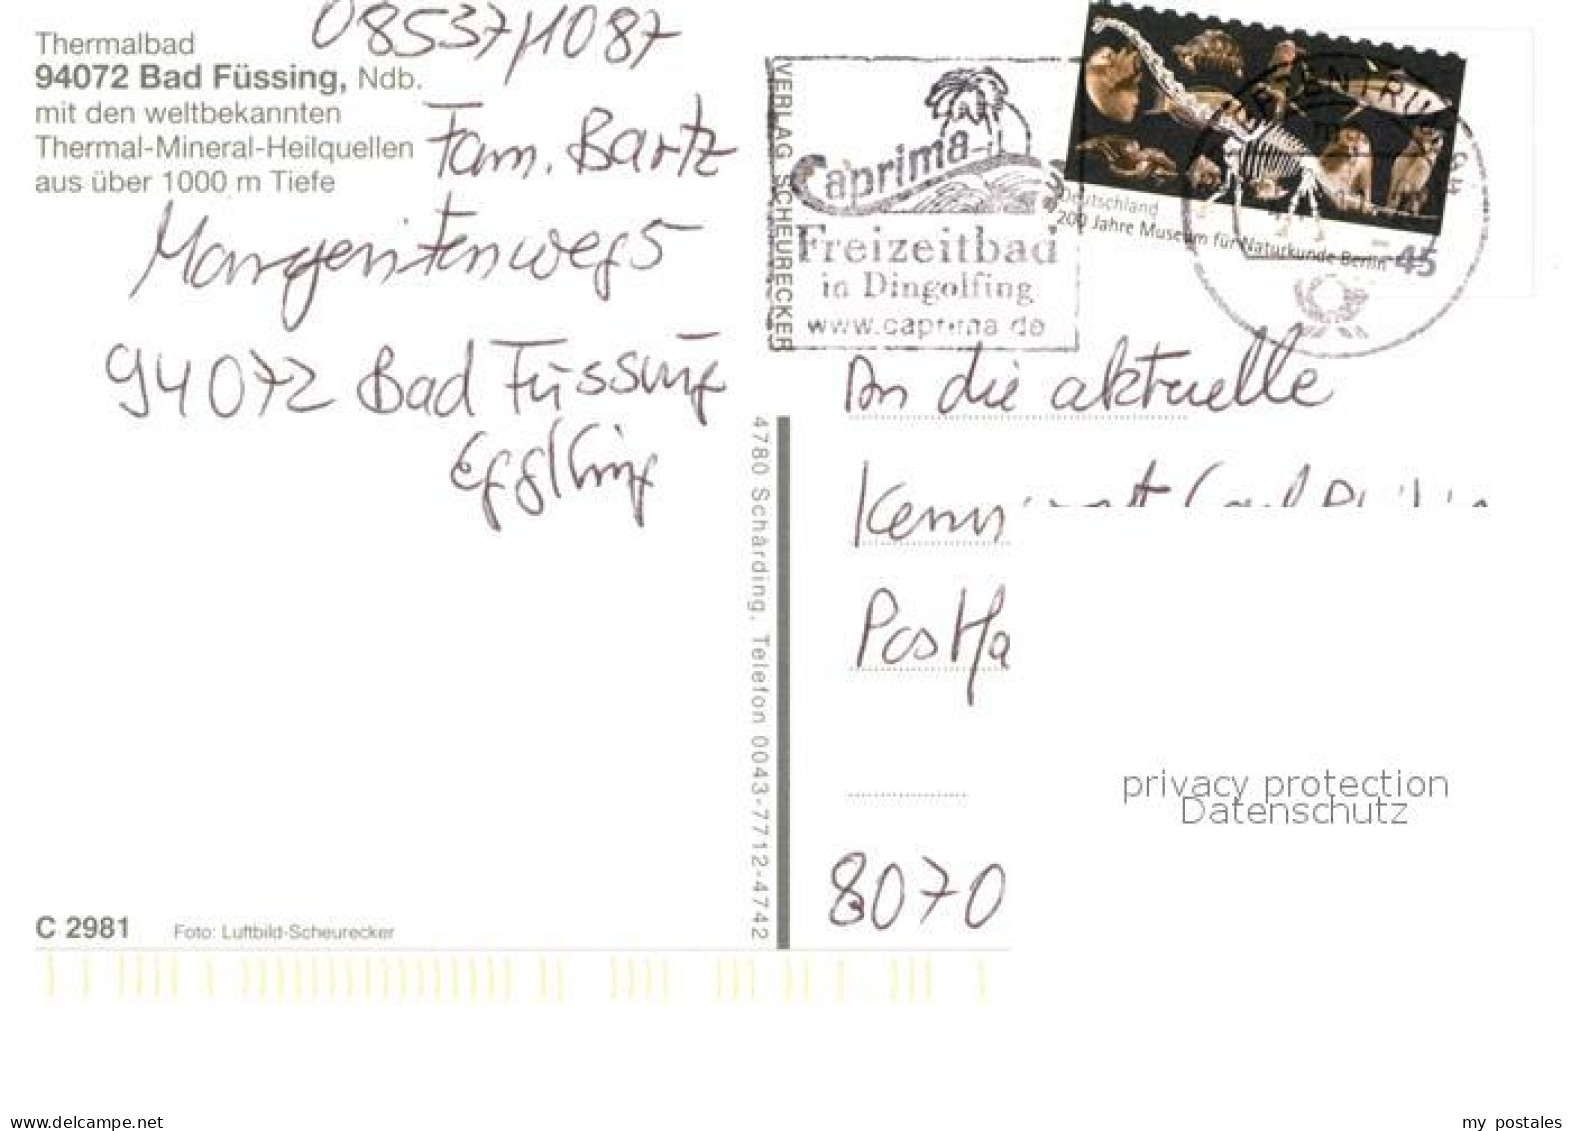 08537/1087
Thermalbad
94072 Bad Füssing, Ndb.
mit den weltbekannten
Thermal-Mineral-Heilquellen
aus über 1000 m Tiefe
Fam. Bartz
Margeritenweg 5
94072 Bad Füssing
Egglfing
VERLAG SCHEURECKER
4780 Schärding, Telefon 0043-7712-4742
Caprima
Freizeitbad
in Dingolfing
www.caprima.de
Deutschland
200 Jahre Museum für Naturkunde Berlin
45
An die aktuelle
Postfa
8070
privacy protection
Datenschutz
C 2981
Foto: Luftbild-Scheurecker
www.delcampe.net
my_postales